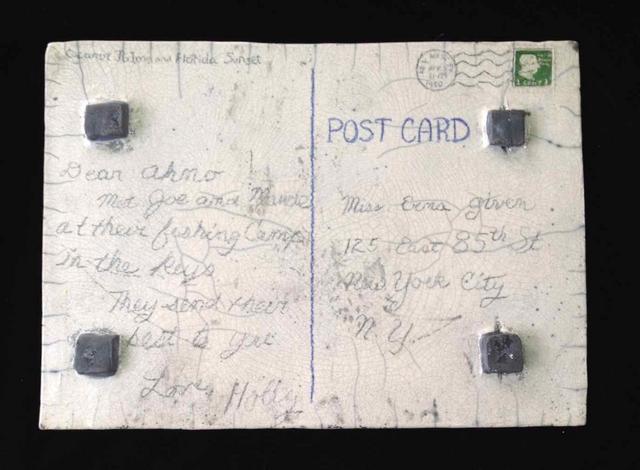 Palms and Florida Sunset
POST CARD
Dear Ahno
Met Joe and Maude
at their fishing Camp
In the Keys
They send their
best to you
Love, Holly
Miss Erna given
125 East 85th St
New York City
N.Y.